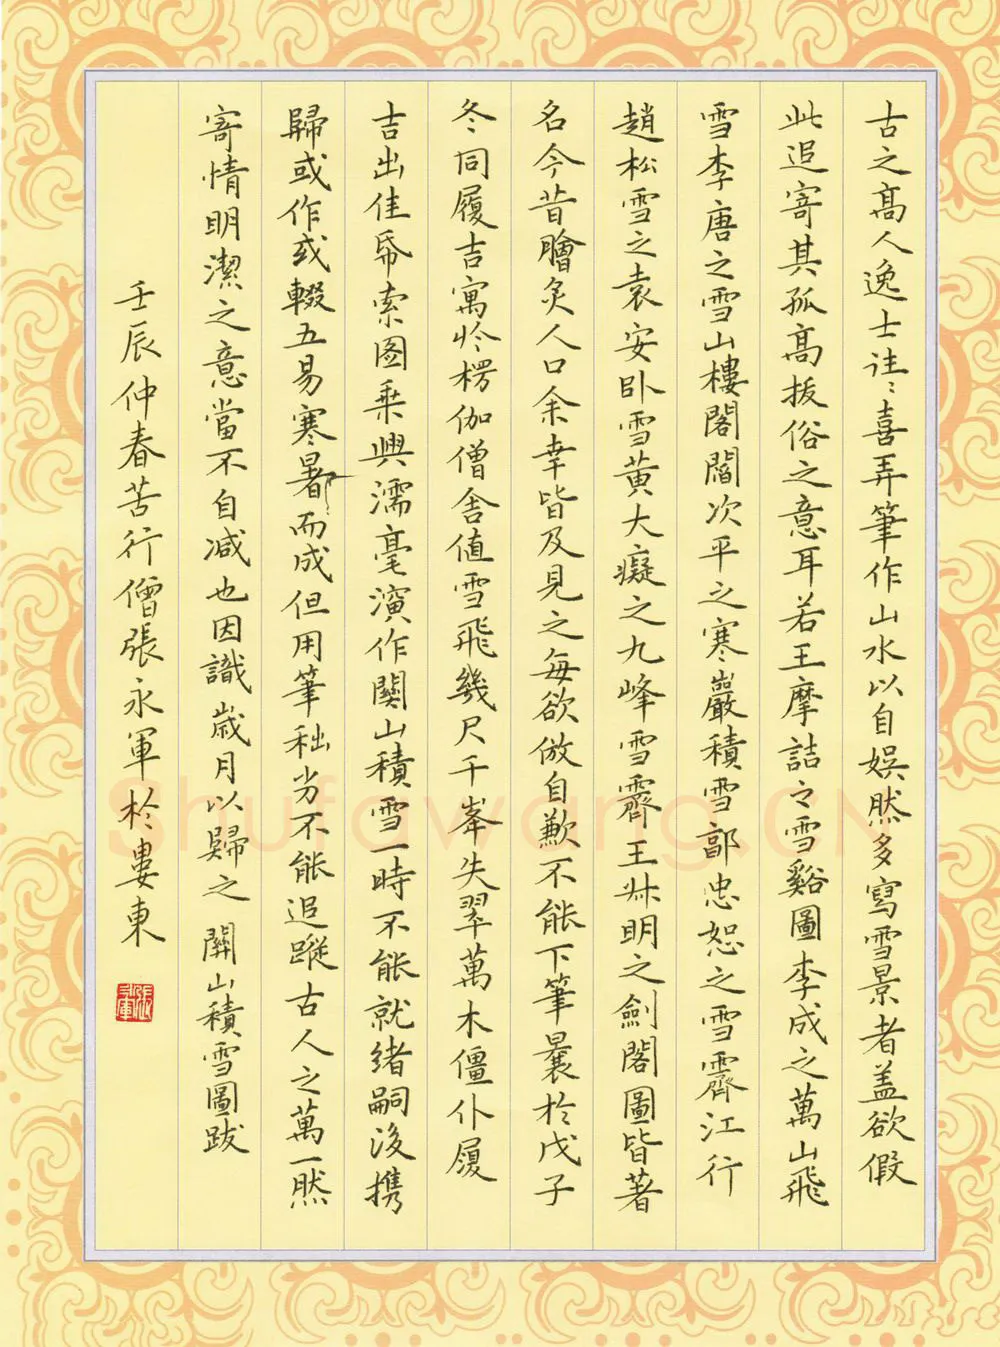 古之高人逸士往々喜弄筆作山水以自娛然多寫雪景者盖欲假
此追寄其孤高拔俗之意耳若王摩詰之雪谿圖李成之萬山飛
雪李唐之雪山樓閣閻次平之寒巖積雪郭忠恕之雪霽江行
趙松雪之袁安卧雪黄大癡之九峰雪霽王叔明之劍閣圖皆著
名今昔膾炙人口余幸皆及見之每欲倣自歉不能下筆曩於戊子
冬同履吉寓於楞伽僧舍值雪飛幾尺千峯失翠萬木僵仆履
吉出佳帋索图乗興濡毫演作関山積雪一時不能就緒嗣後携
歸或作或輟五易寒暑而成但用筆秾劣不能追蹤古人之萬一然
寄情明潔之意當不自减也因識歳月以歸之 關山積雪圖跋
壬辰仲春苦行僧張永軍於婁東
Shufawang.CN